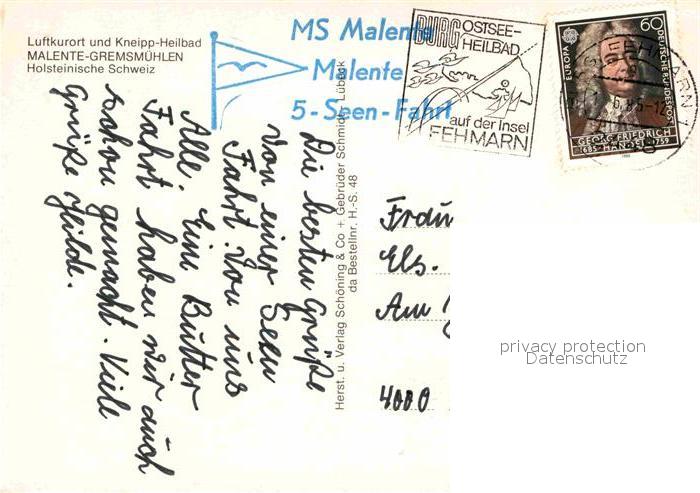 Luftkurort und Kneipp-Heilbad
MALENTE-GREMSMÜHLEN
Holsteinische Schweiz
MS Malente
Malente
5-Seen-Fahrt
BURG OSTSEE-
HEILBAD
auf der Insel
FEHMARN
60
EUROPA
DEUTSCHE BUNDESPOST
GEORG FRIEDRICH
1685-HÄNDEL-1759
Die besten Grüße
von einer Seen
Fahrt. Von uns
Alle. Eine Butter
Fahrt haben wir auch
schon gemacht. Viele
Grüße Hilde.
Herst. u. Verlag Schöning & Co + Gebrüder Schmidt, Lübeck
da Bestellnr. H.-S. 48
Frau
Els.
Am
4000
privacy protection
Datenschutz